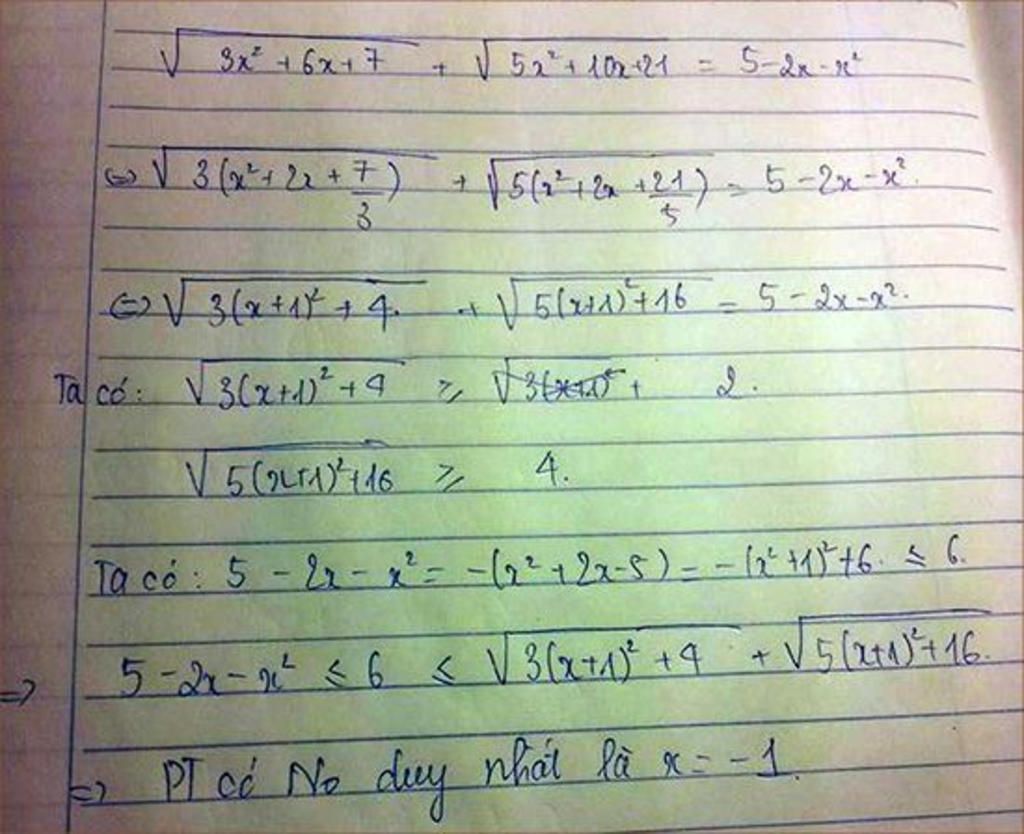 √(3x² + 6x + 7) + √(5x² + 10x + 21) = 5 - 2x - x²
⇔ √(3(x² + 2x + 7/3)) + √(5(x² + 2x + 21/5)) = 5 - 2x - x².
⇔ √(3(x+1)² + 4.) + √(5(x+1)² + 16) = 5 - 2x - x².
Ta có: √(3(x+1)² + 4) ⩾ 2.
√(5(x+1)² + 16) ⩾ 4.
Ta có: 5 - 2x - x² = -(x² + 2x - 5) = -(x² + 1)² + 6. ≤ 6.
⇒ 5 - 2x - x² ≤ 6 ≤ √(3(x+1)² + 4) + √(5(x+1)² + 16.)
⇒ PT có No duy nhất là x = -1.